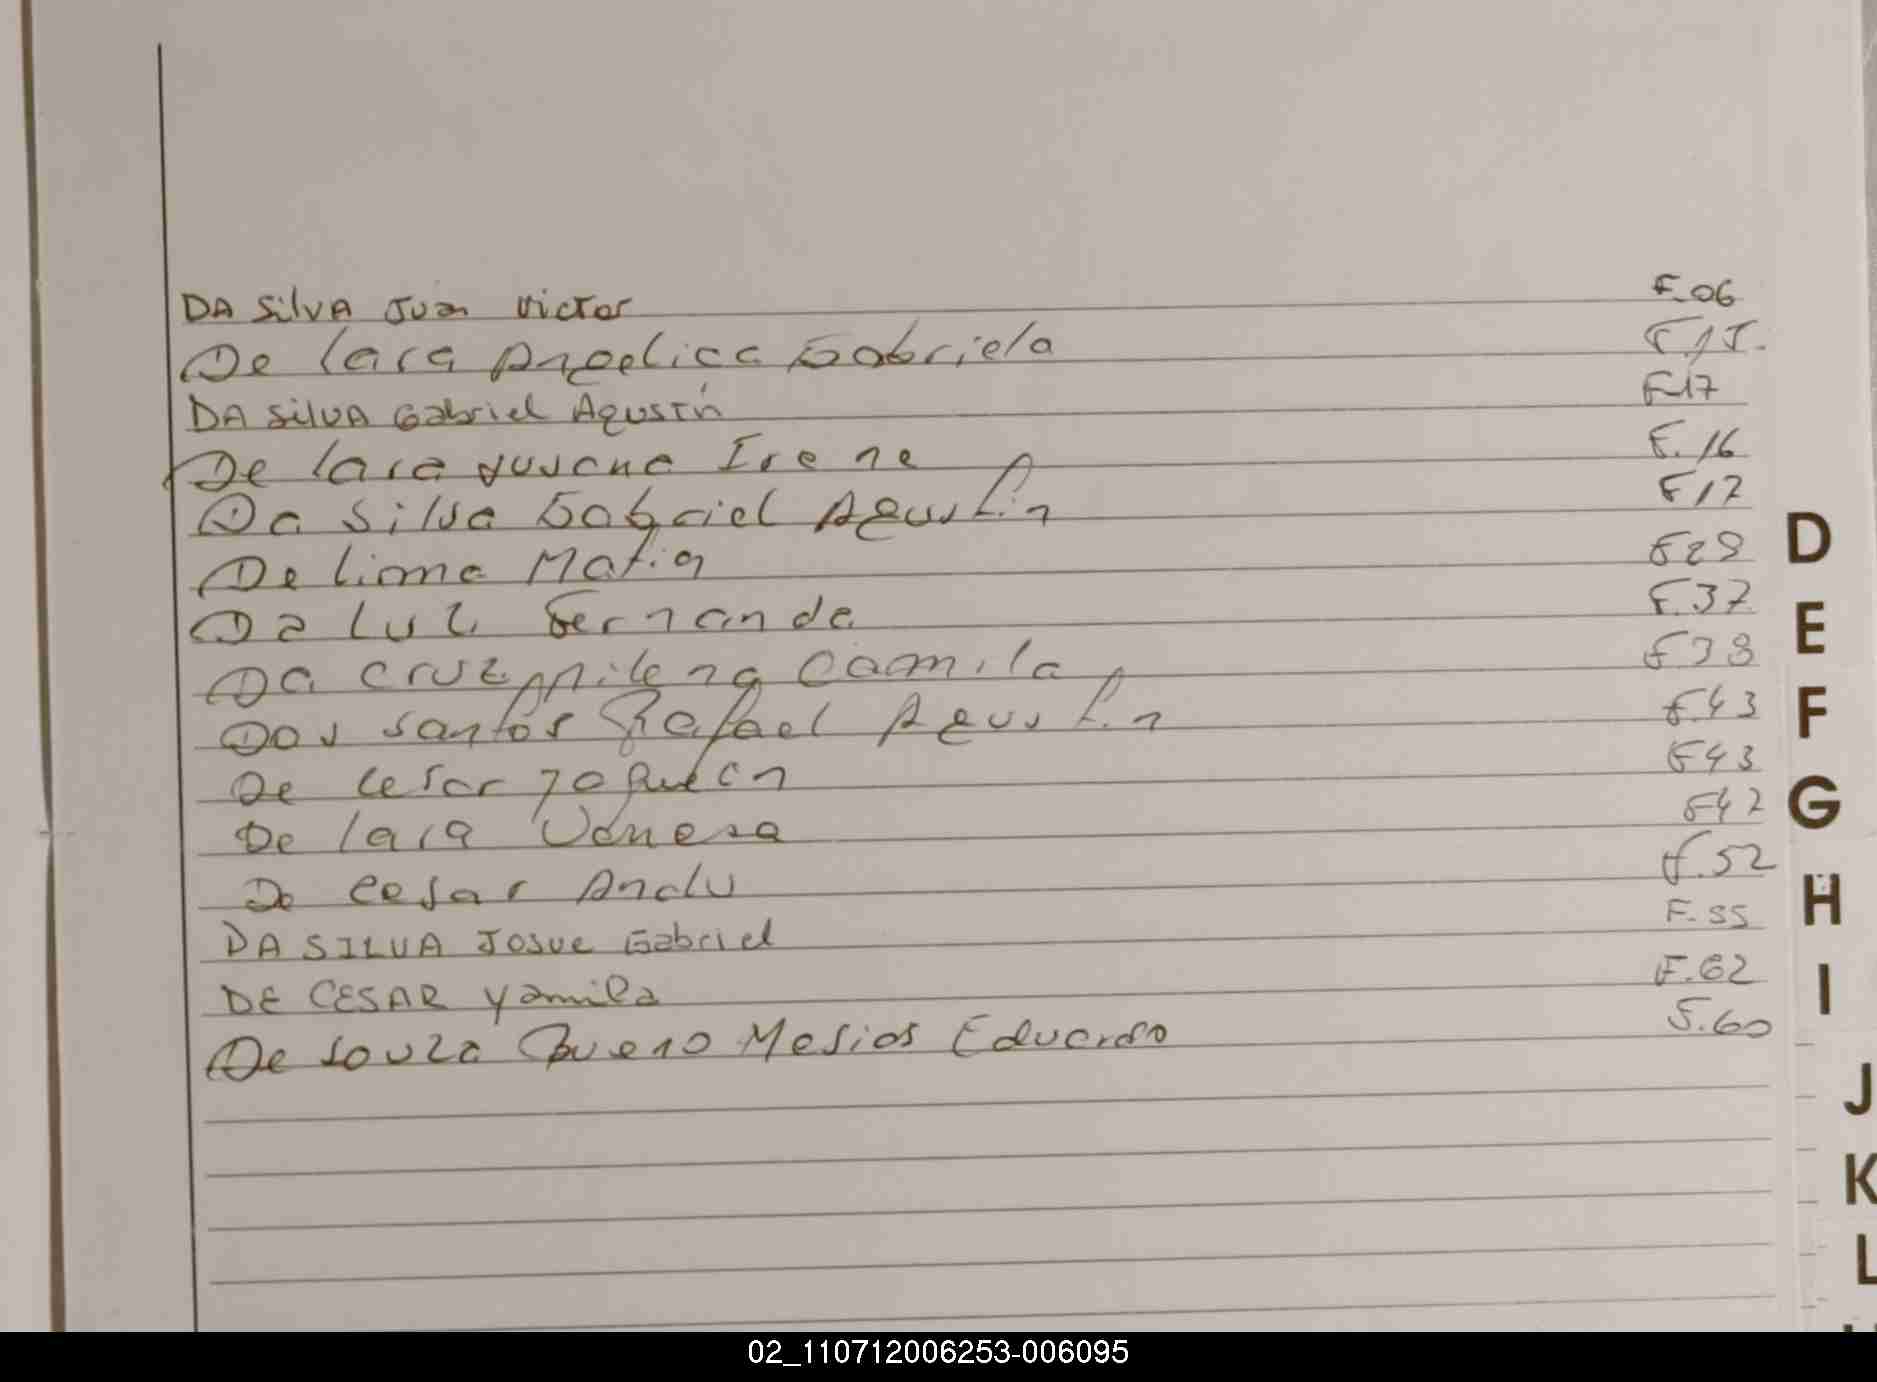 DA SilVA Juan Victor F.06
De lara Angelica Gabriela F.15.
DA SilVA Gabriel Agustín F-17
De lara Susana Irene F.16
Da Silva Gabriel Agustin F17
De lima Matia F29
Da Luz Fernanda F.37
Da cruz Milena Camila F38
Dos santos Rafael Agustin F.43
De Cesar Joquein F43
De lara Vanesa F42
De Cesar F.52
DA SILVA Josue Gabriel F.55
DE CESAR Yamila F.62
De souza Bueno Mesias Eduardo F.60
D
E
F
G
H
I
J
K
L
02_110712006253-006095